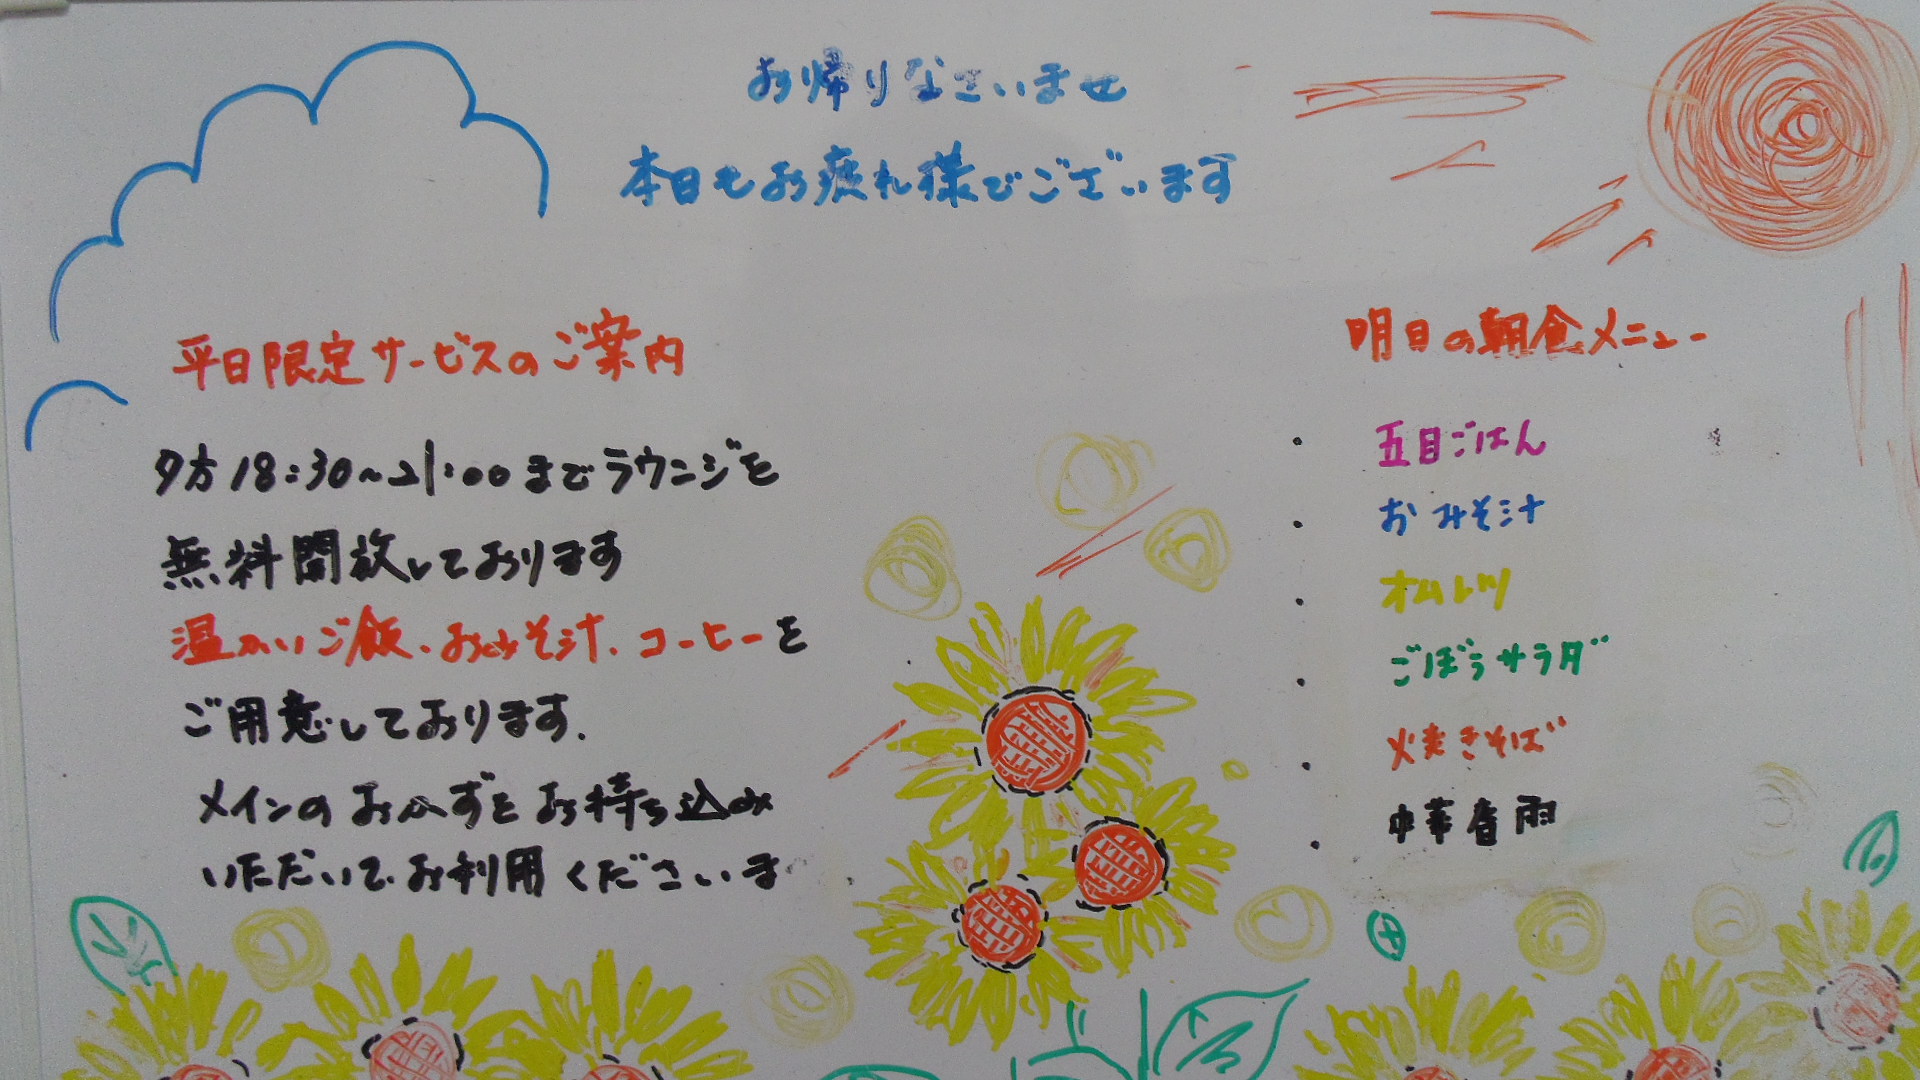 お帰りなさいませ
本日もお疲れ様でございます
平日限定サービスのご案内
夕方18:30～21:00までラウンジを
無料開放しております
温かいご飯、おみそ汁、コーヒーを
ご用意しております.
メインのおかずをお持ち込み
いただいて、お利用くださいま
明日の朝食メニュー
・五目ごはん
・おみそ汁
・オムレツ
・ごぼうサラダ
・焼きそば
・中華春雨